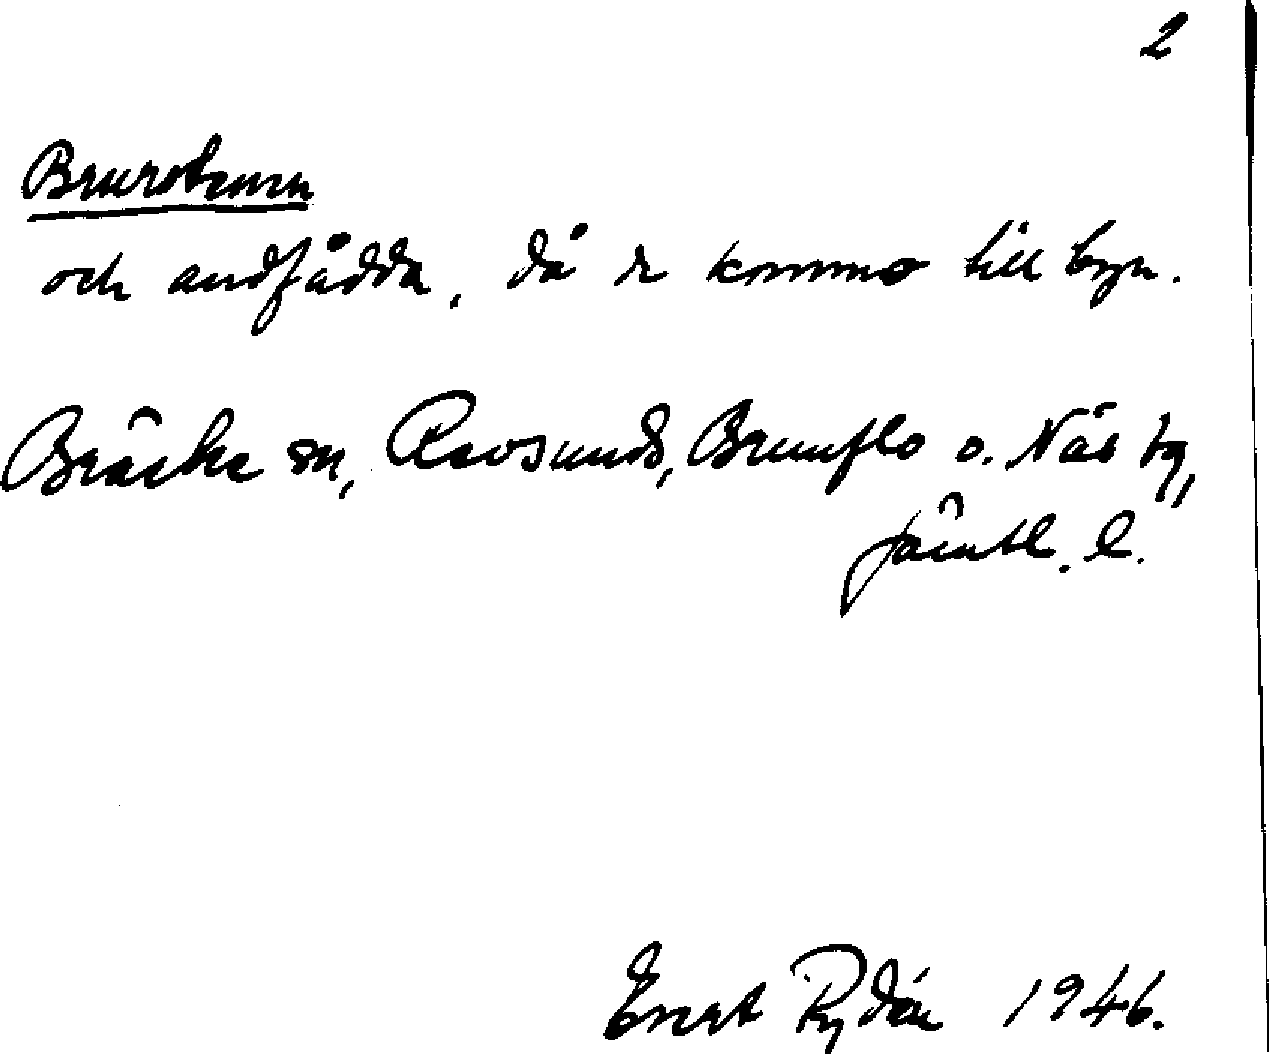 2
Brurstenen
och andfådda, då de kommo till byn.
Bräcke sn, Revsunds, Brunflo o. Näs tg,
Jämtl. l.
Evert Rydén 1946.